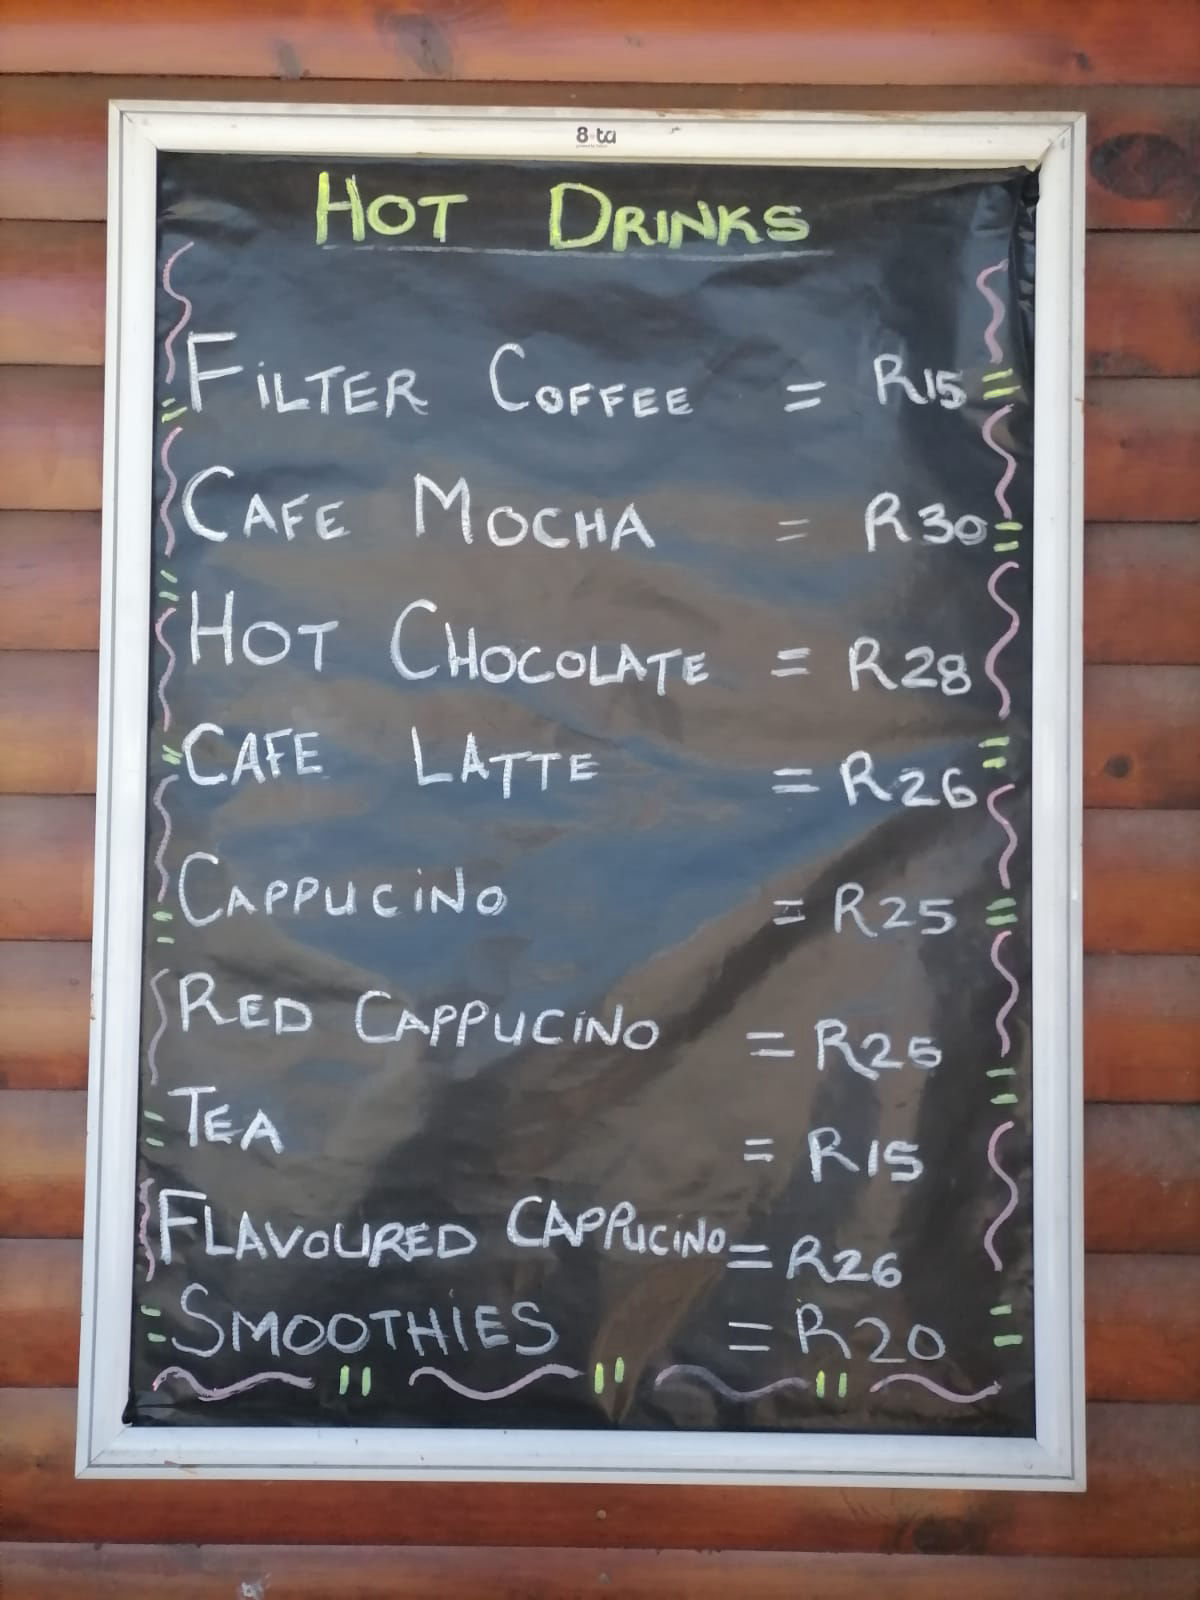 8·ta
HOT DRINKS
FILTER COFFEE = R15
CAFE MOCHA = R30
HOT CHOCOLATE = R28
CAFE LATTE = R26
CAPPUCINO = R25
RED CAPPUCINO = R25
TEA = R15
FLAVOURED CAPPUCINO = R26
SMOOTHIES = R20